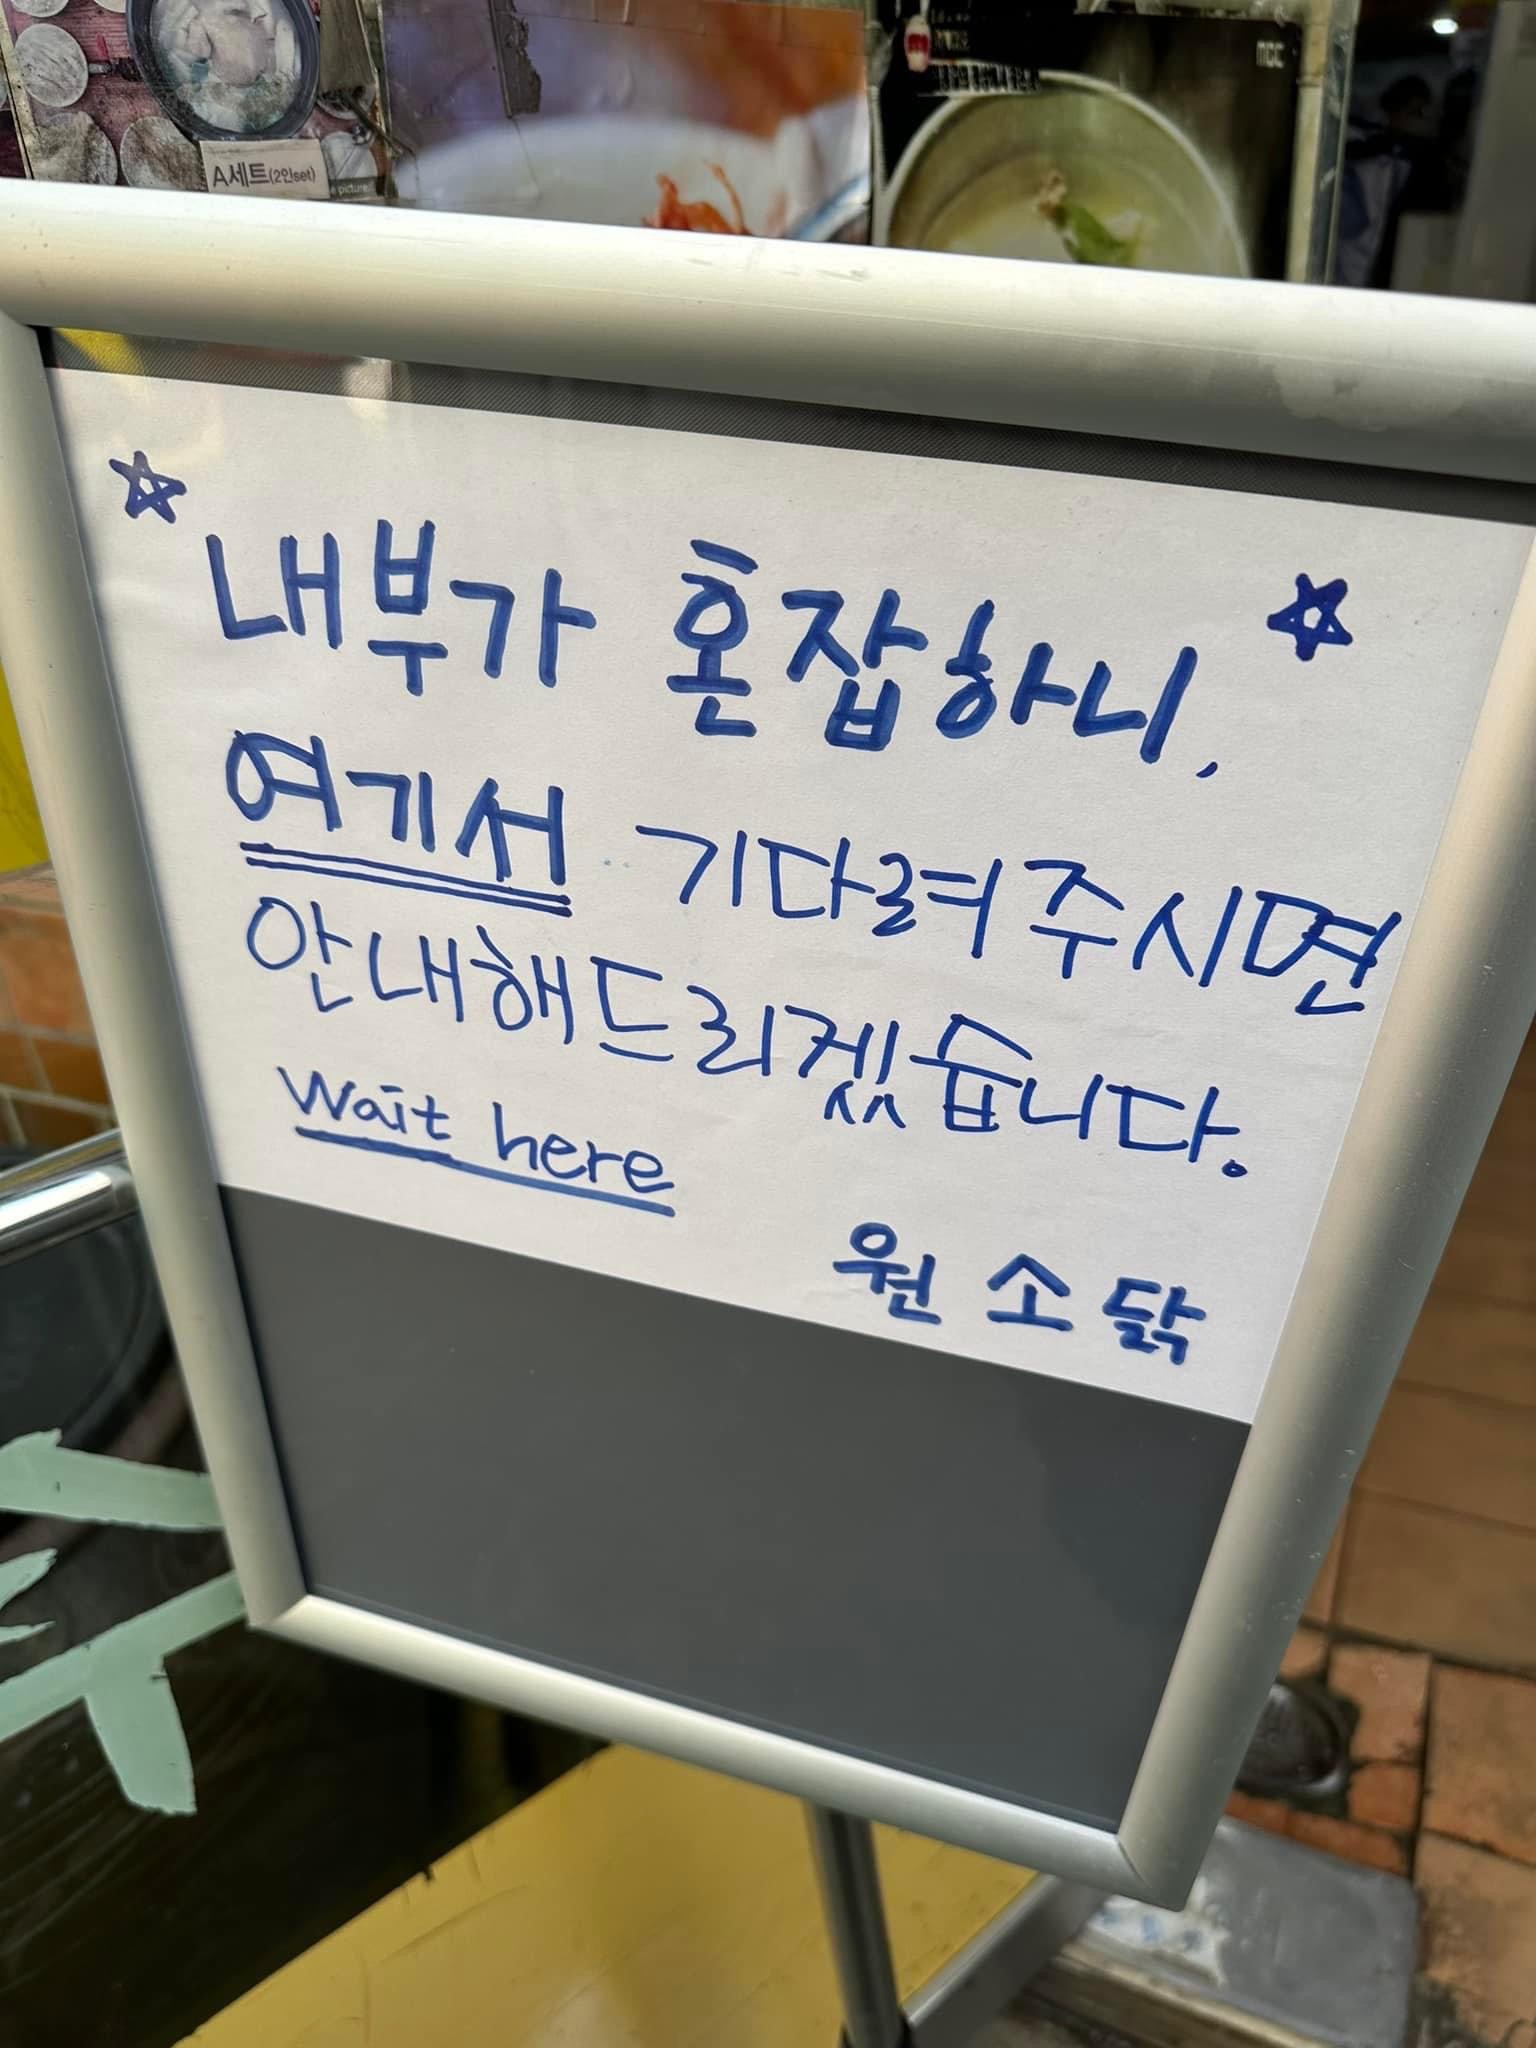 MBC
A세트(2인set)
e picture
☆ 내부가 혼잡하니, ☆
여기서 기다려 주시면
안내해드리겠습니다.
Wait here
원소닭